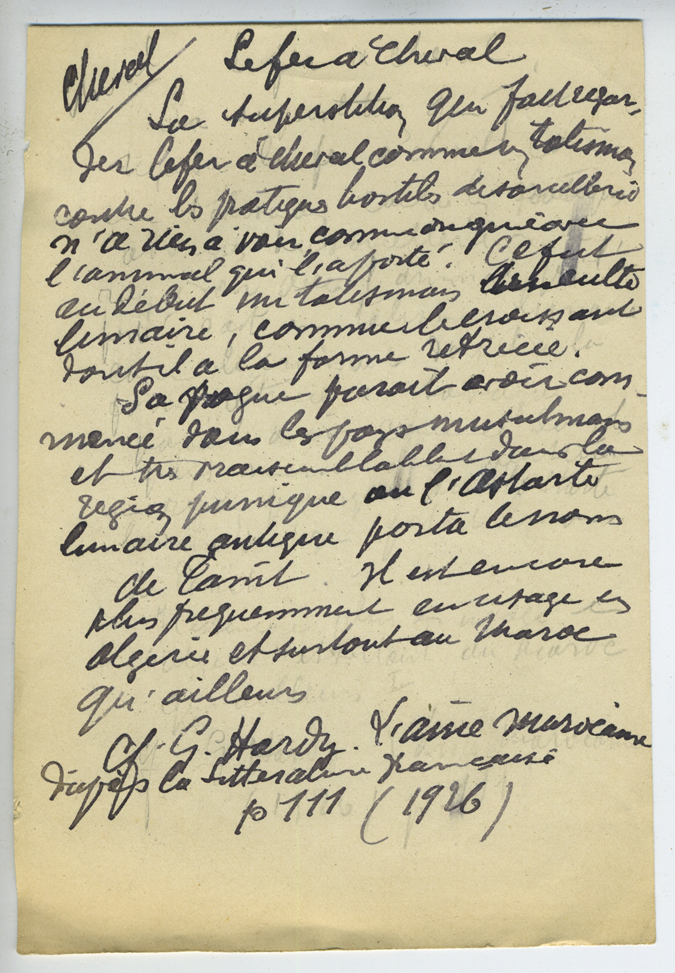 Cheval
Le fer à cheval
La superstition qui fait regar-
der le fer à cheval comme un talisman
contre les pratiques hostiles de sorcellerie
n'a rien à voir comme on que avec
l'animal qui l'a porté. Ce fut
au début un talisman du culte
lunaire, comme le croissant
dont il a la forme rétrécie.
La vogue paraît avoir com-
mencé dans les pays musulmans
et très vraisemblablet dans la
région punique où l'Astarté
lunaire antique porta le nom
de Tanit. Il est encore
plus fréquemment en usage en
Algérie et surtout au Maroc
qu'ailleurs
Cf. G. Hardy. L'âme marocaine
d'après la littérature française
p 111 (1926)